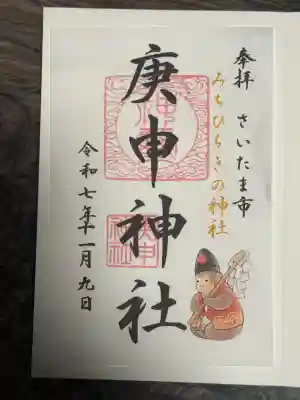 奉拝 さいたま市
みちひらきの神社
庚申神社
令和七年十一月九日